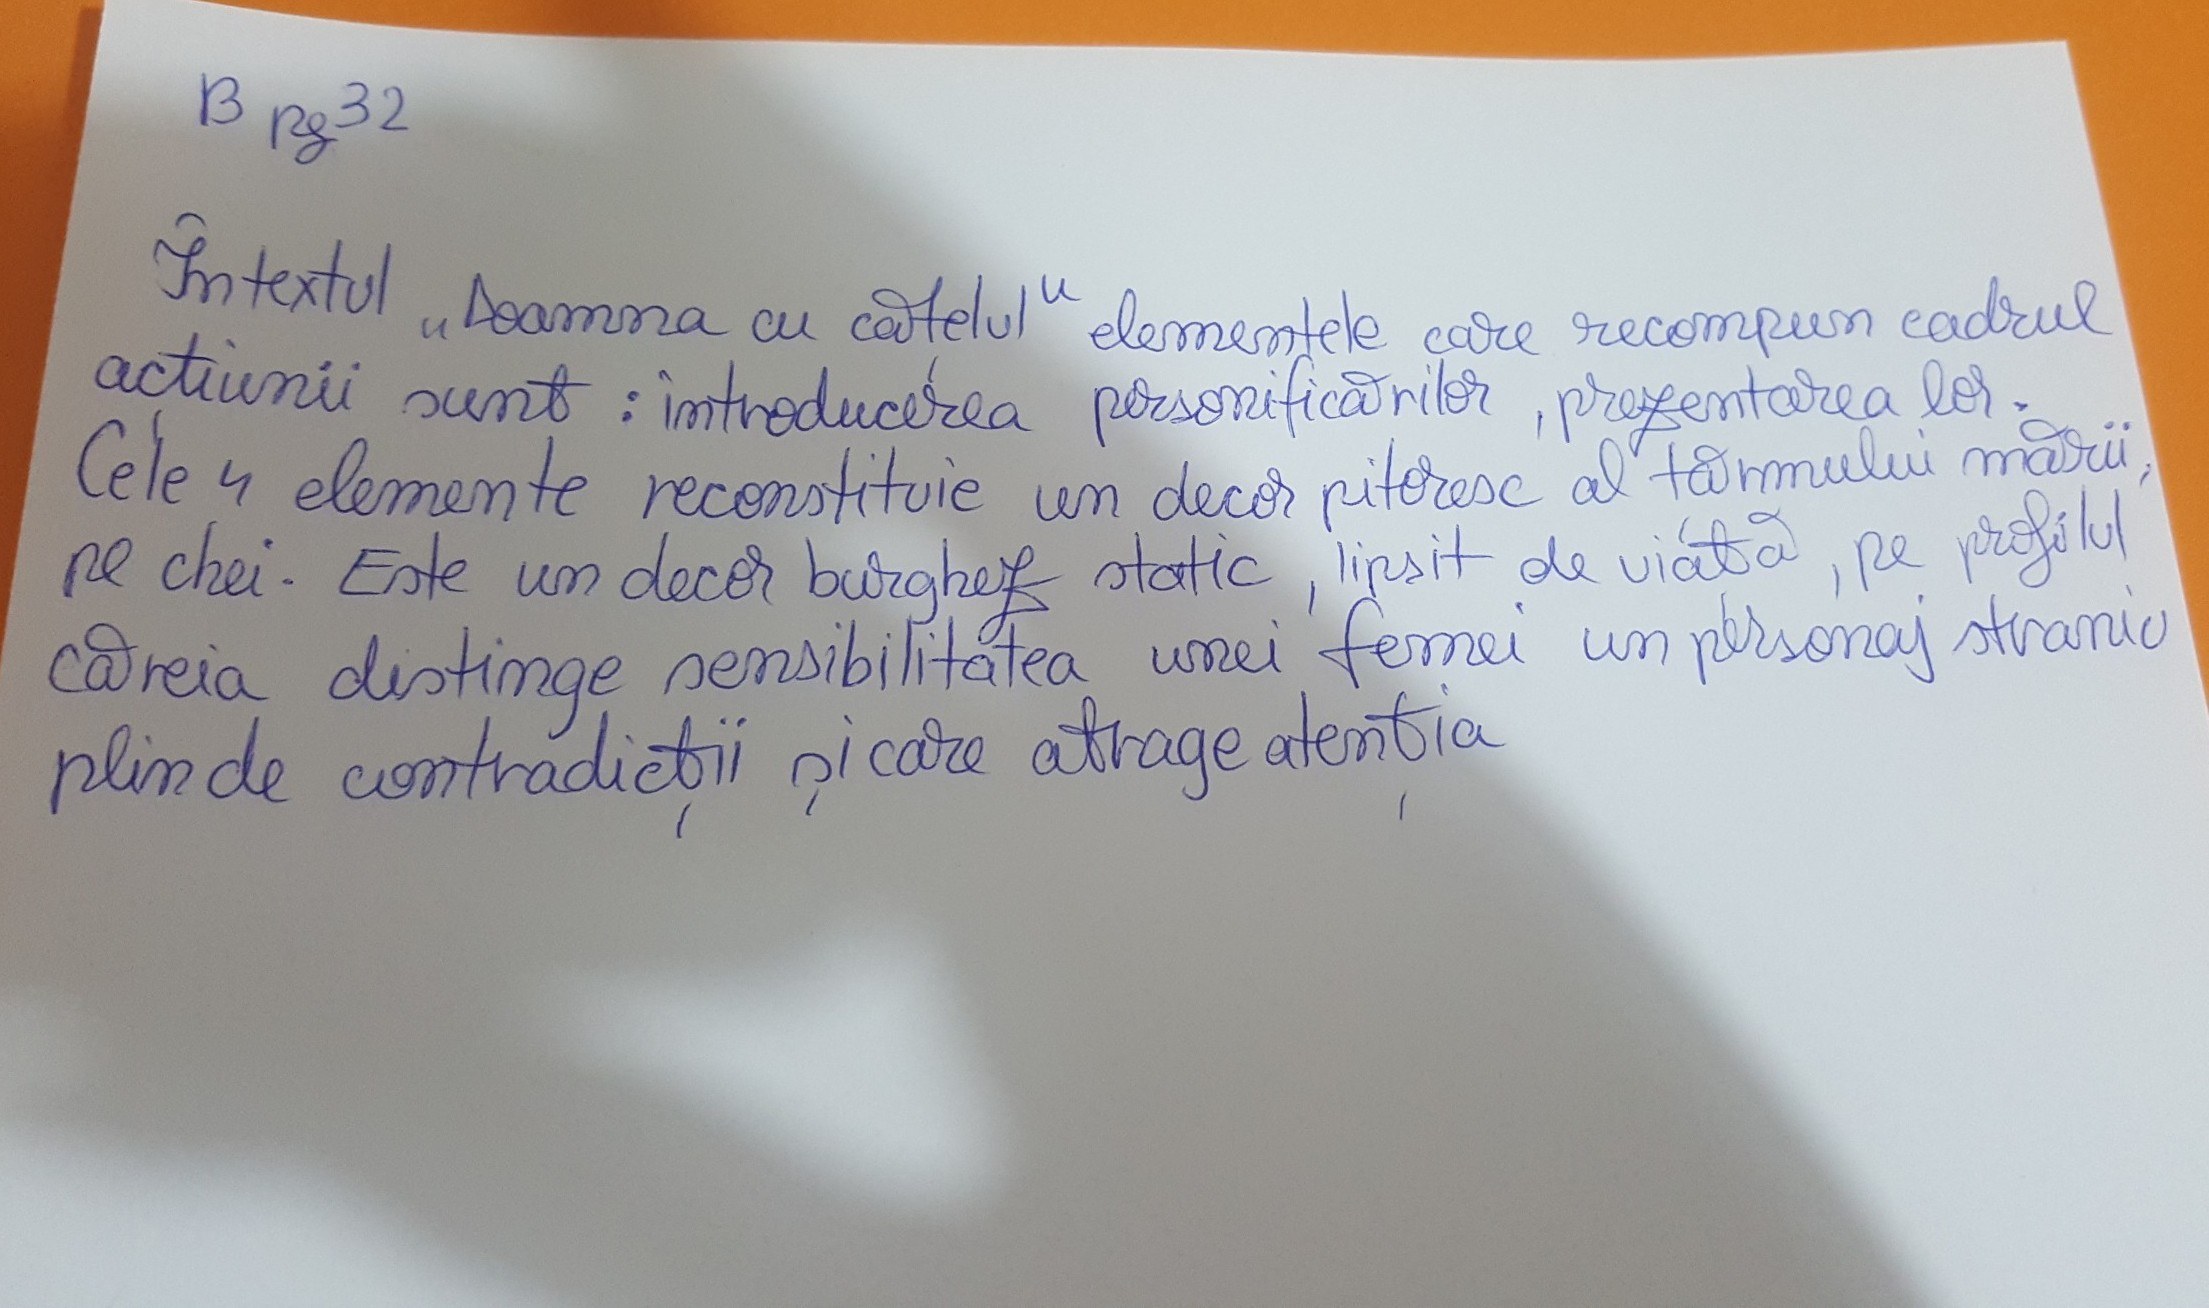 B pg 32
În textul „Doamna cu cățelul" elementele care recompun cadrul
acțiunii sunt : introducerea personificărilor, prezentarea lor.
Cele 4 elemente reconstituie un decor pitoresc al țărmului mării,
pe chei. Este un decor burghez static, lipsit de viață, pe profilul
căreia distinge sensibilitatea unei femei un personaj straniu
plin de contradicții și care atrage atenția